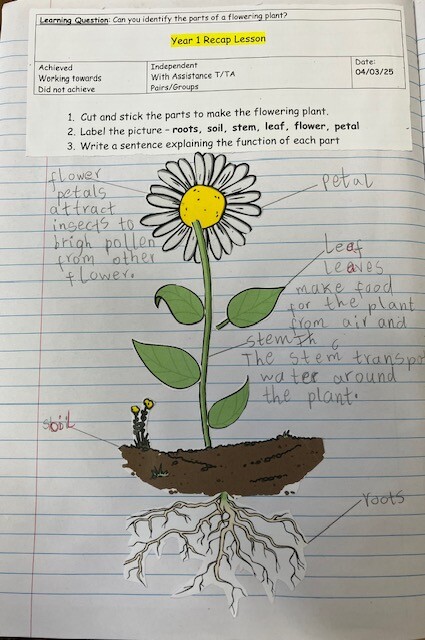 Learning Question: Can you identify the parts of a flowering plant?
Year 1 Recap Lesson
Achieved
Working towards
Did not achieve
Independent
With Assistance T/TA
Pairs/Groups
Date:
04/03/25
1. Cut and stick the parts to make the flowering plant.
2. Label the picture – roots, soil, stem, leaf, flower, petal
3. Write a sentence explaining the function of each part
flower
petals
attract
insects to
brigh pollen
from other
flower.
petal
Leaf
Leaves
make food
for the plant
from air and
stem
The stem transpo
water around
the plant.
soil
roots